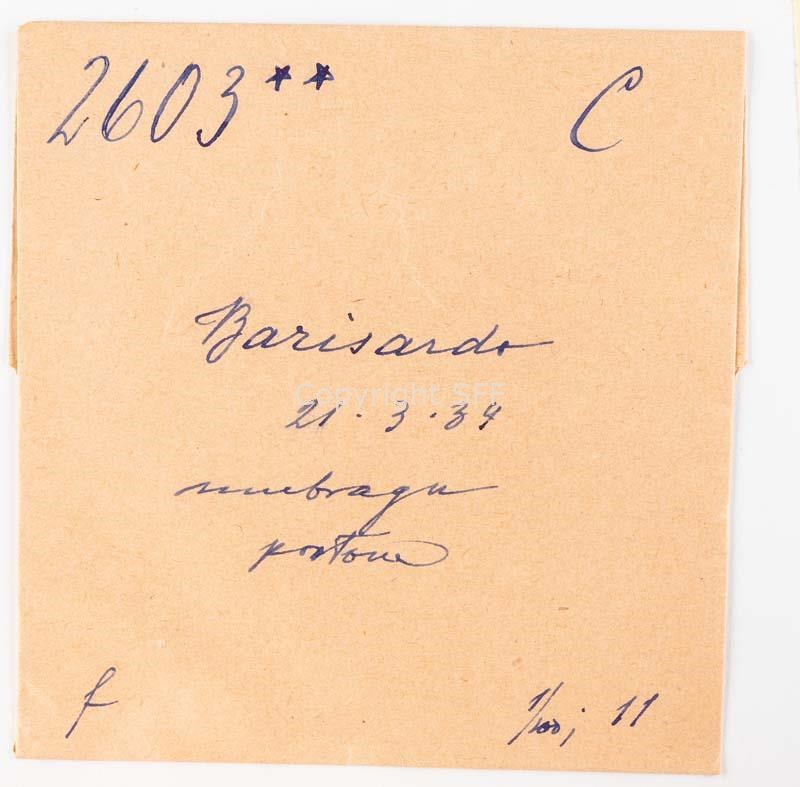 2603** C
Barisardo
Copyright SFF
21.3.34
portone
f 1/100; 11